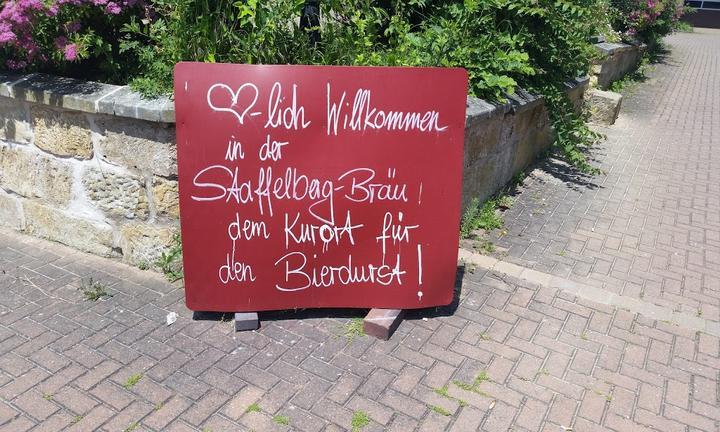 ♡-lich Willkommen
in der
Staffelberg-Bräu,
dem Kurort für
den Bierdurst!